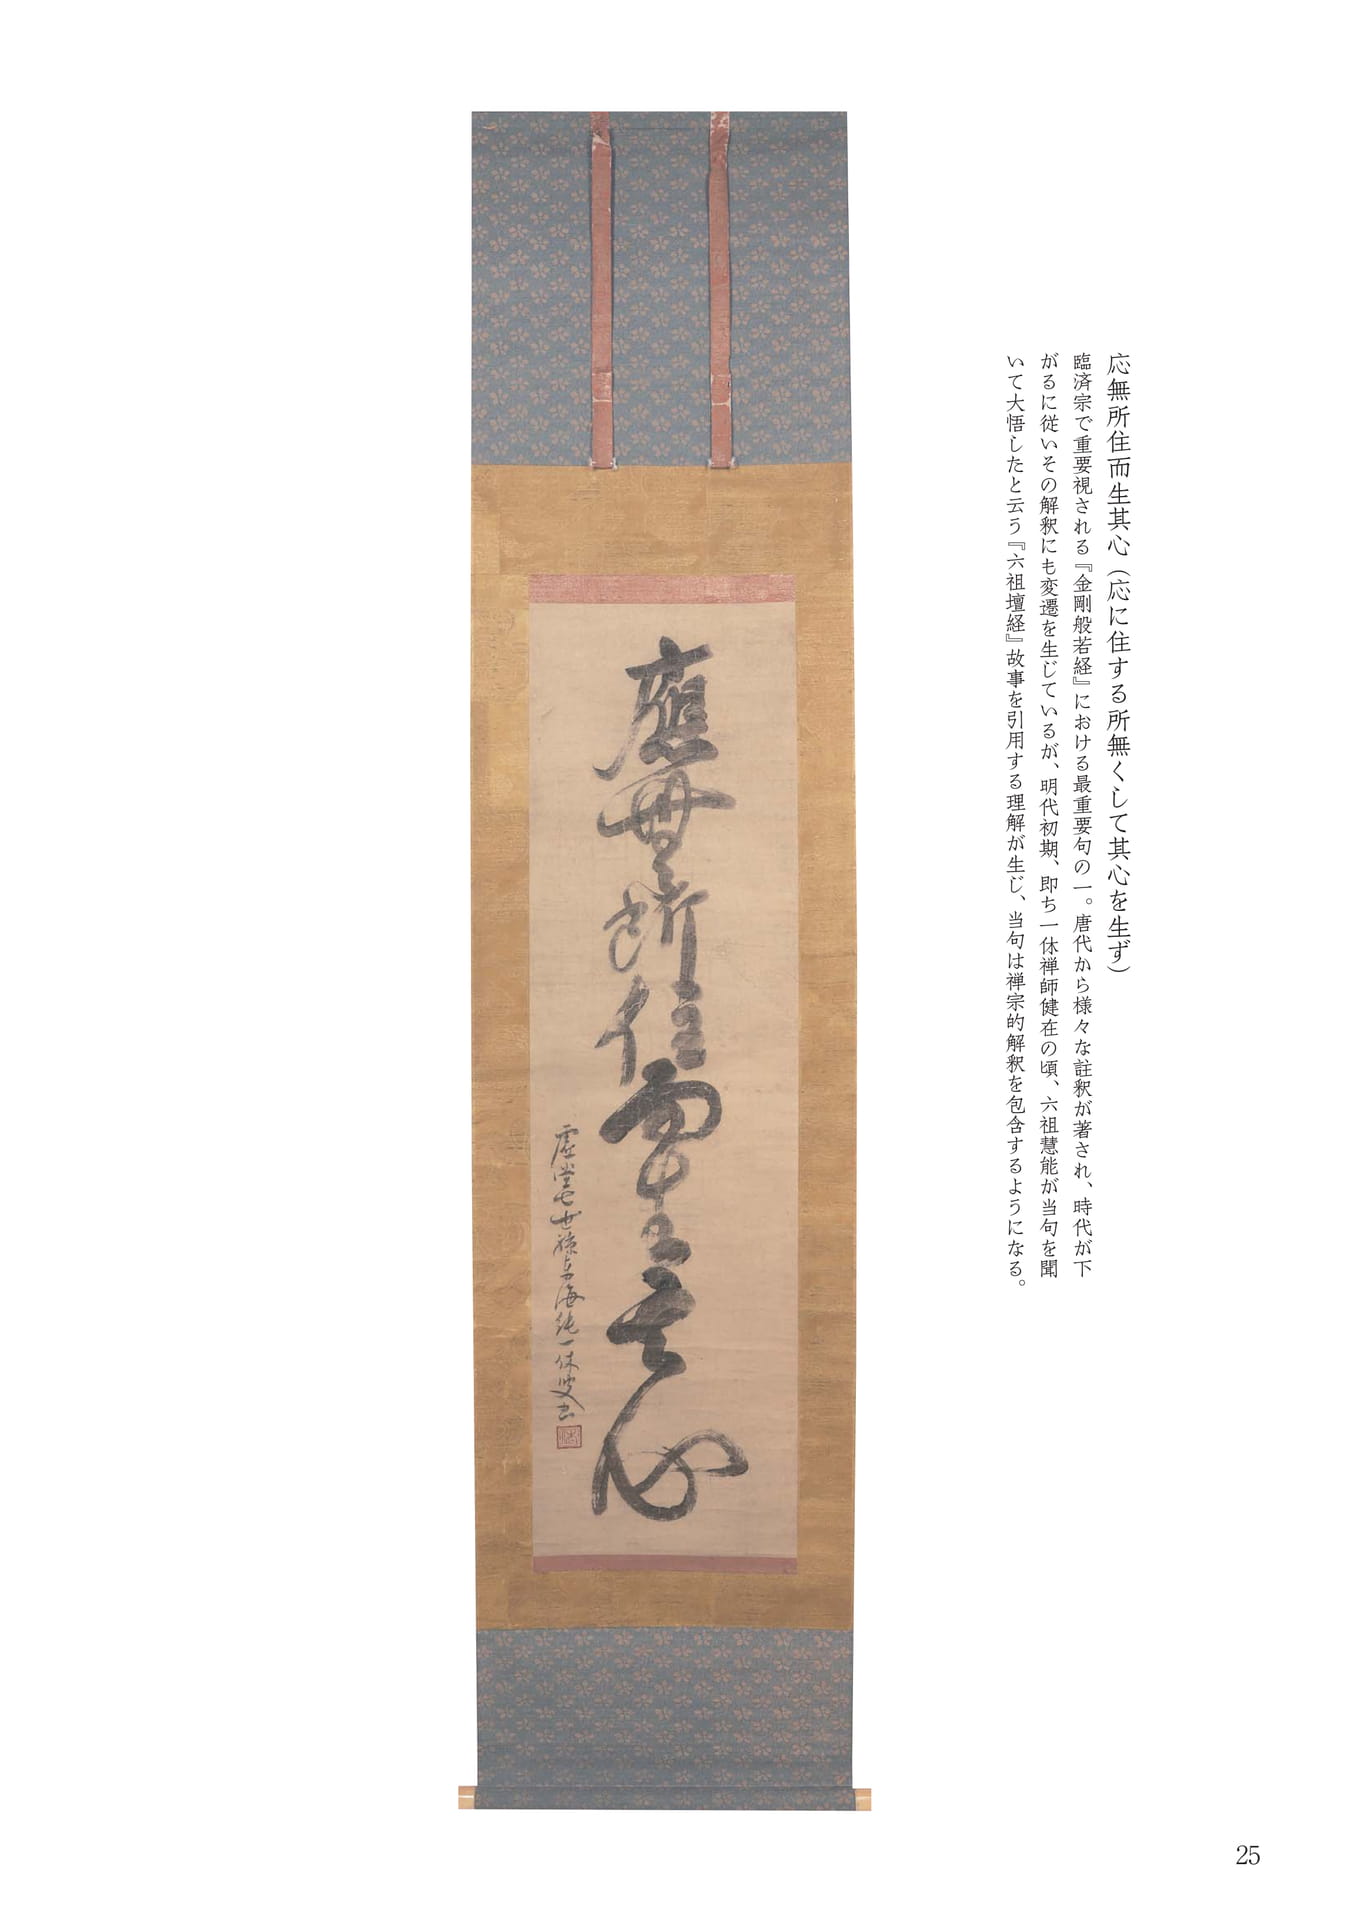 応無所住而生其心（応に住する所無くして其心を生ず）
臨済宗で重要視される『金剛般若経』における最重要句の一。唐代から様々な註釈が著され、時代が下
がるに従いその解釈にも変遷を生じているが、明代初期、即ち一休禅師健在の頃、六祖慧能が当句を聞
いて大悟したと云う『六祖壇経』故事を引用する理解が生じ、当句は禅宗的解釈を包含するようになる。
應無所住而生其心
虚堂七世孫東海純一休叟書
25